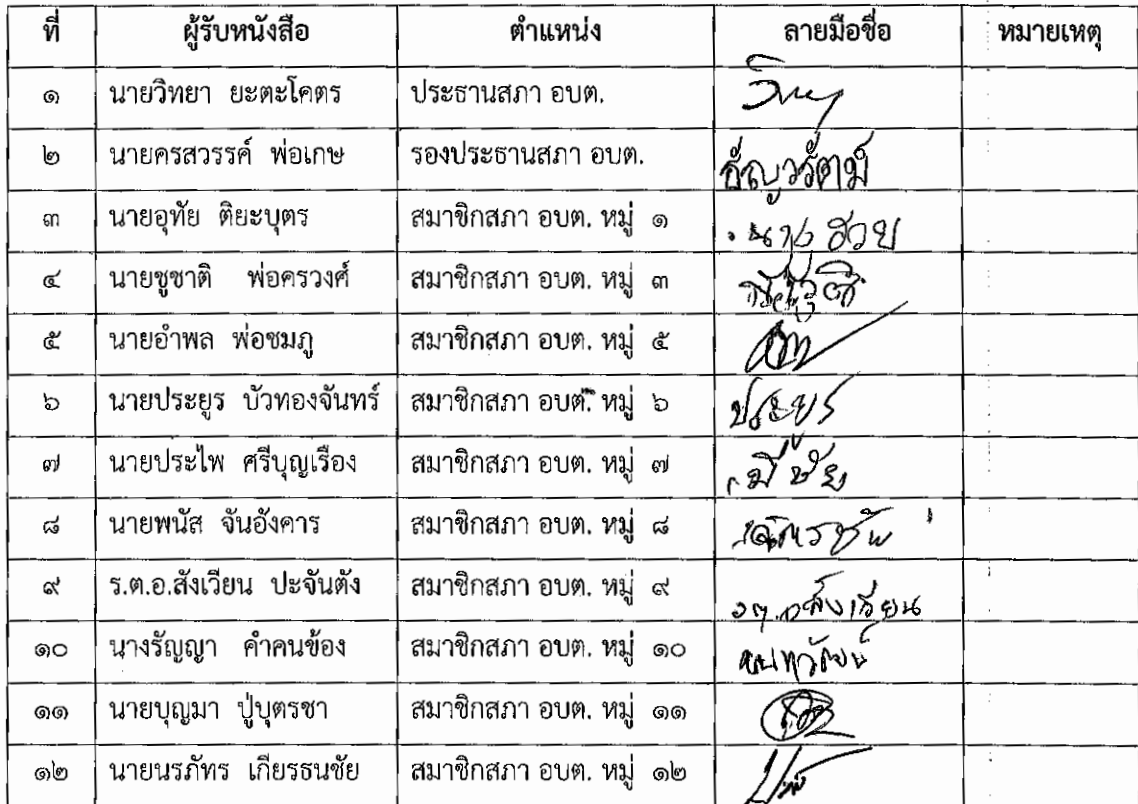 ที่ ผู้รับหนังสือ ตำแหน่ง ลายมือชื่อ หมายเหตุ
๑ นายวิทยา ยะตะโคตร ประธานสภา อบต.
๒ นายครสวรรค์ พ่อเกษ รองประธานสภา อบต.
๓ นายอุทัย ติยะบุตร สมาชิกสภา อบต. หมู่ ๑
๔ นายชูชาติ พ่อครวงศ์ สมาชิกสภา อบต. หมู่ ๓
๕ นายอำพล พ่อชมภู สมาชิกสภา อบต. หมู่ ๕
๖ นายประยูร บัวทองจันทร์ สมาชิกสภา อบต. หมู่ ๖ ประยูร
๗ นายประไพ ศรีบุญเรือง สมาชิกสภา อบต. หมู่ ๗
๘ นายพนัส จันอังคาร สมาชิกสภา อบต. หมู่ ๘
๙ ร.ต.อ.สังเวียน ปะจันตัง สมาชิกสภา อบต. หมู่ ๙
๑๐ นางรัญญา คำคนข้อง สมาชิกสภา อบต. หมู่ ๑๐
๑๑ นายบุญมา ปู่บุตรชา สมาชิกสภา อบต. หมู่ ๑๑
๑๒ นายนรภัทร เกียรธนชัย สมาชิกสภา อบต. หมู่ ๑๒